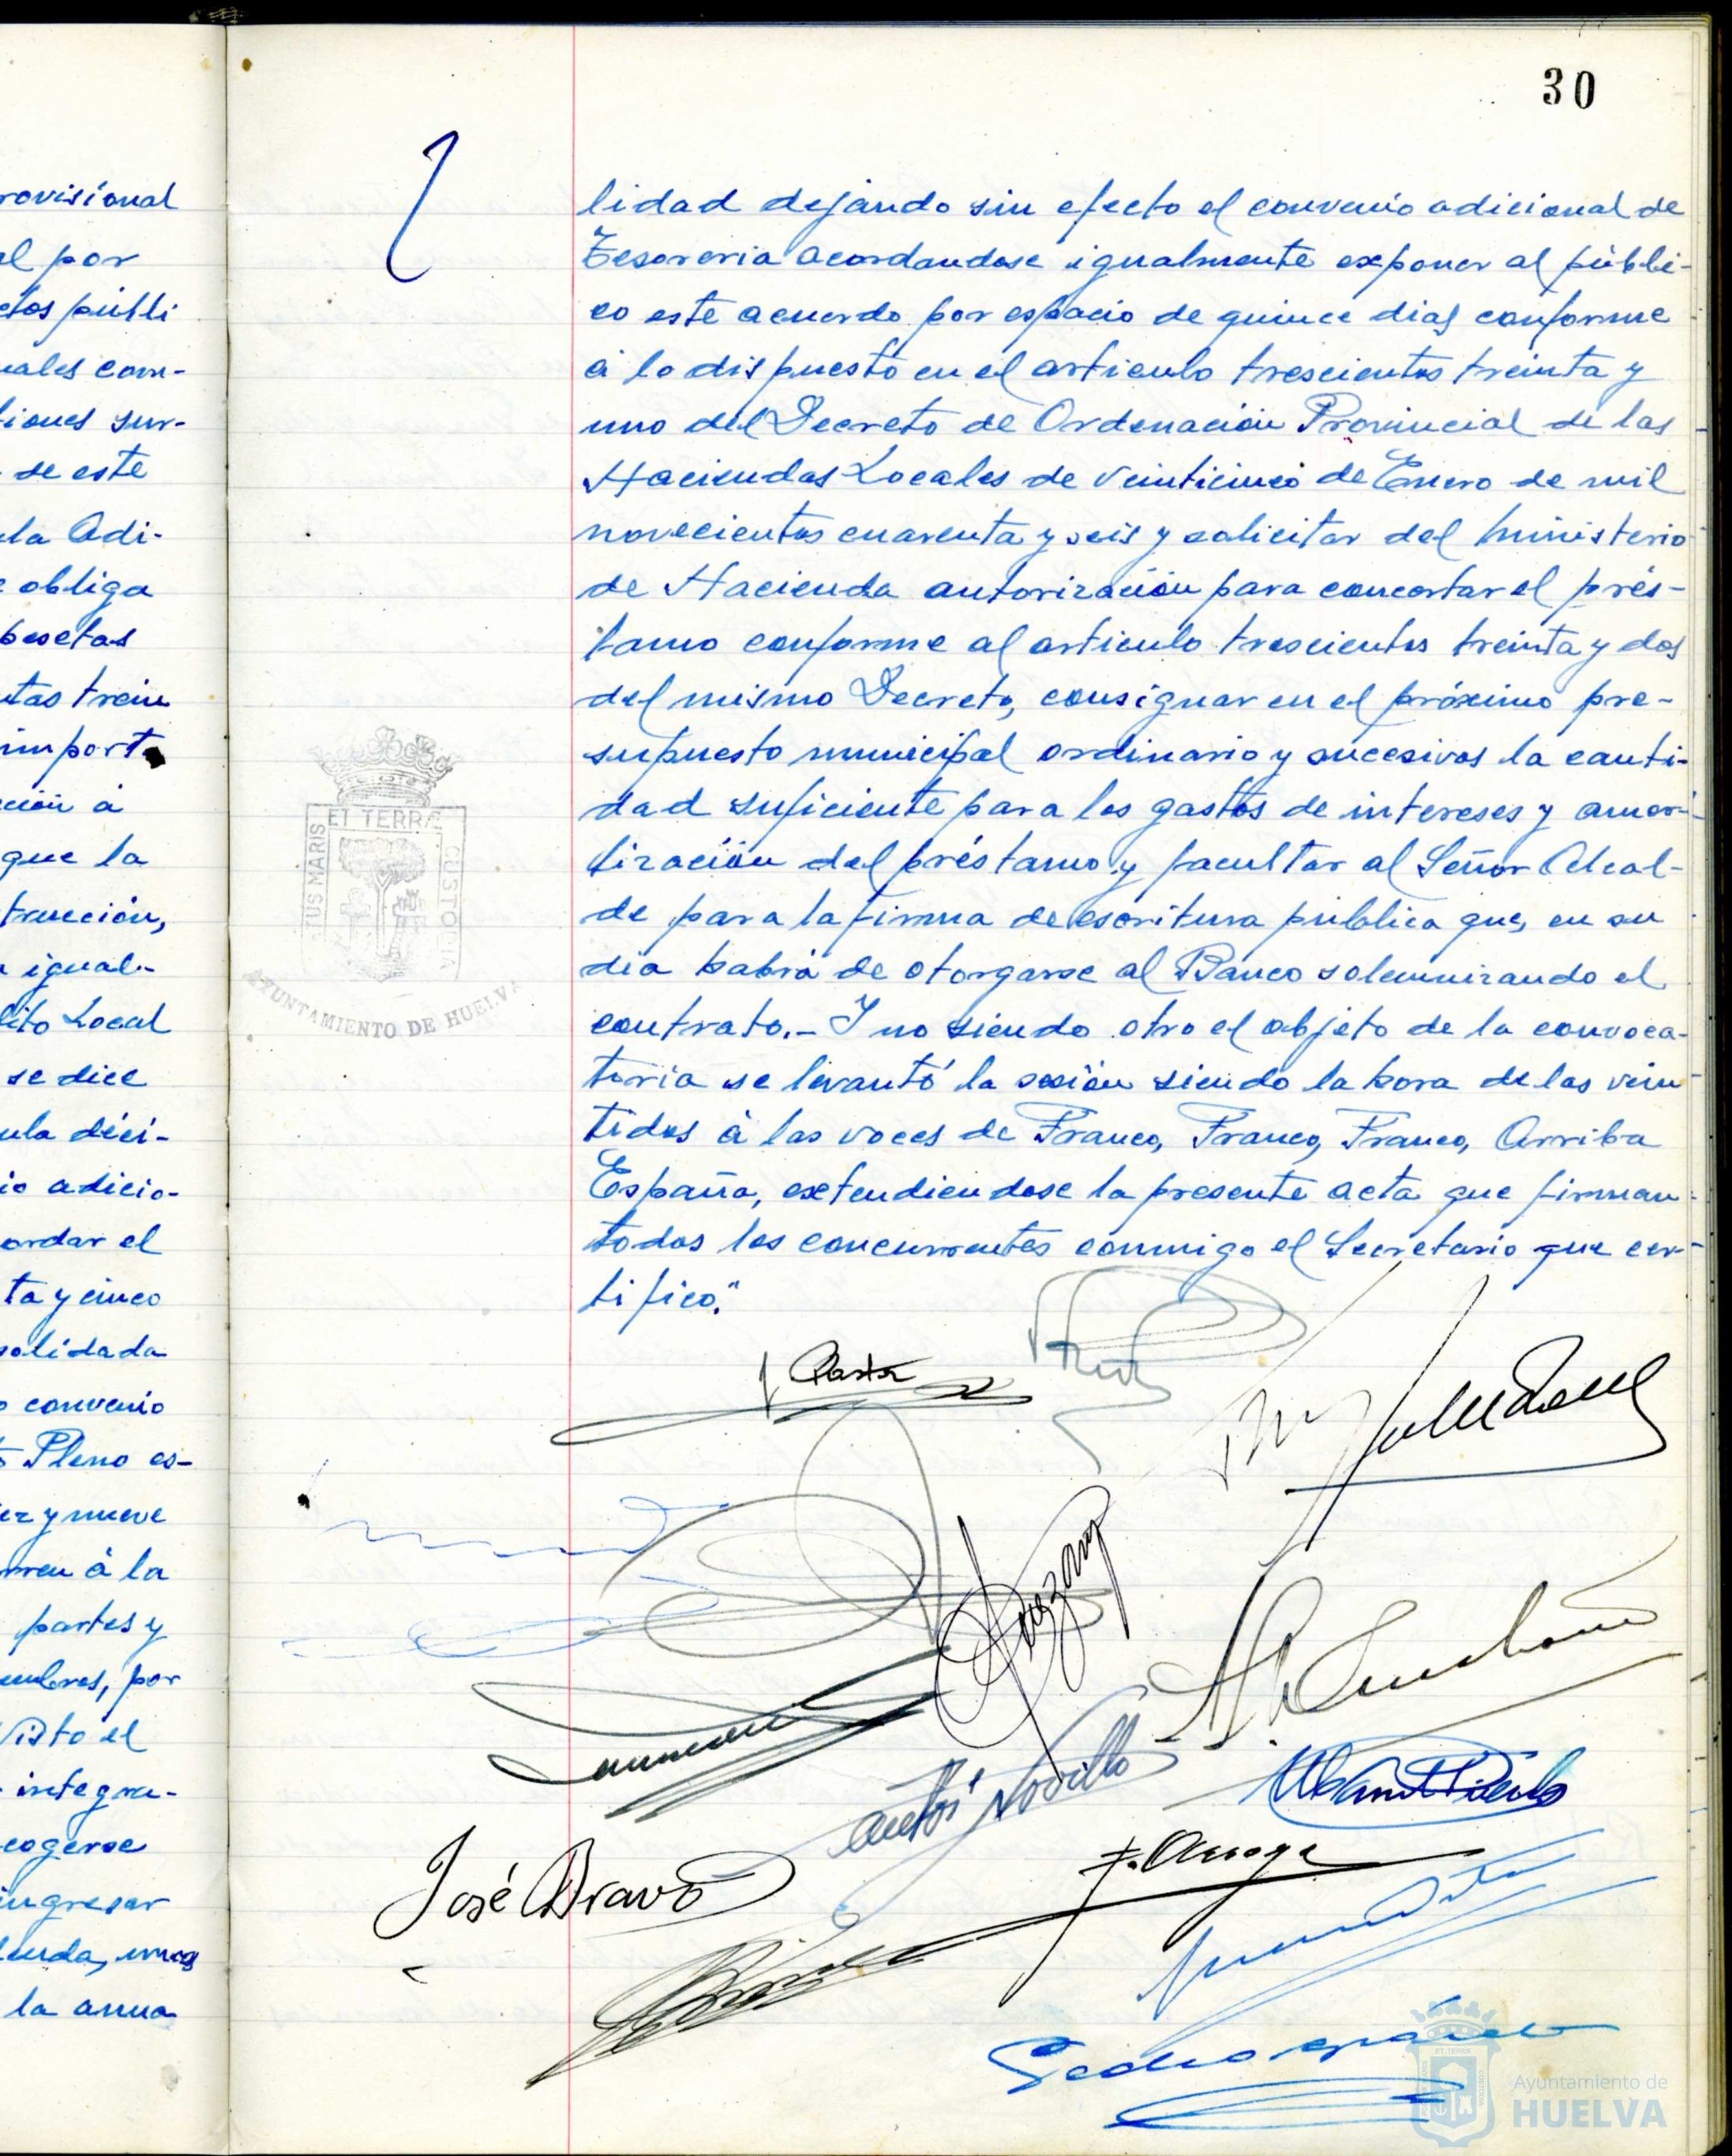 rovisional
el por
ctos públi
uales com-
tiones sur-
de este
ula Adi-
e obliga
pesetas
ntas trein
importe
ción á
que la
trucción,
a igual-
dito Local
se dice
ula déci-
io adicio-
ordar el
ta y cinco
solidada
o convenio
Pleno es-
ez y nueve
rren á la
partes y
por
Visto el
integra-
cogerse
ingresar
unas
la anua
30
lidad dejando sin efecto el convenio adicional de
Tesoreria acordandose igualmente exponer al públi-
co este acuerdo por espacio de quince dias conforme
á lo dispuesto en el articulo trescientos treinta y
uno del Decreto de Ordenación Provincial de las
Haciendas Locales de veinticinco de Enero de mil
novecientos cuarenta y seis y solicitar del Ministerio
de Hacienda autorización para concertar el prés-
tamo conforme al articulo trescientos treinta y dos
del mismo Decreto, consignar en el próximo pre-
supuesto municipal ordinario y sucesivos la canti-
dad suficiente para los gastos de intereses y amor-
tización del préstamo y facultar al Señor Alcal-
de para la firma de escritura pública que, en su
dia habrá de otorgarse al Banco solemnizando el
contrato.- Y no siendo otro el objeto de la convoca-
toria se levantó la sesión siendo la hora de las vein
tidos á las voces de Franco, Franco, Franco, Arriba
España, extendiendose la presente acta que firman
todos los concurrentes conmigo el Secretario que cer-
tifico."
ET TERRÆ
TUS MARIS
CUSTODIA
AYUNTAMIENTO DE HUELVA
José Bravo
Ayuntamiento de
HUELVA